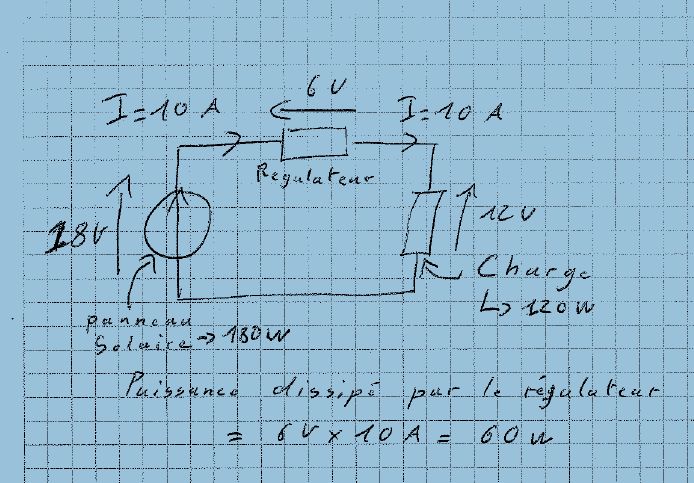 6 V
I = 10 A
I = 10 A
Régulateur
18V
12V
Charge
↳ 120 W
panneau
Solaire → 180 W
Puissance dissipé par le régulateur
= 6 V × 10 A = 60 W